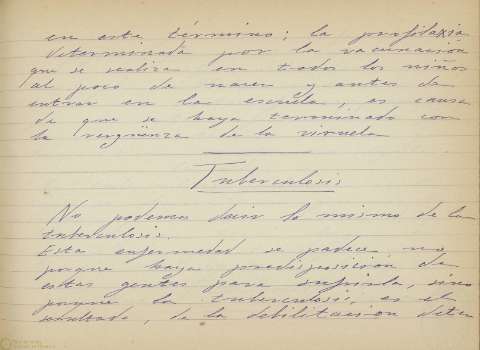 en este término; la profilaxia
determinada por la vacunación
que se realiza en todos los niños
al poco de nacer y antes de
entrar en la escuela, es causa
de que se haya terminado con
la vergüenza de la viruela
Tuberculosis
No podemos decir lo mismo de la
tuberculosis.
Esta enfermedad se padece no
porque haya predisposición de
estas gentes para sufrirla, sino
porque la tuberculosis, es el
resultado, de la debilitación deter